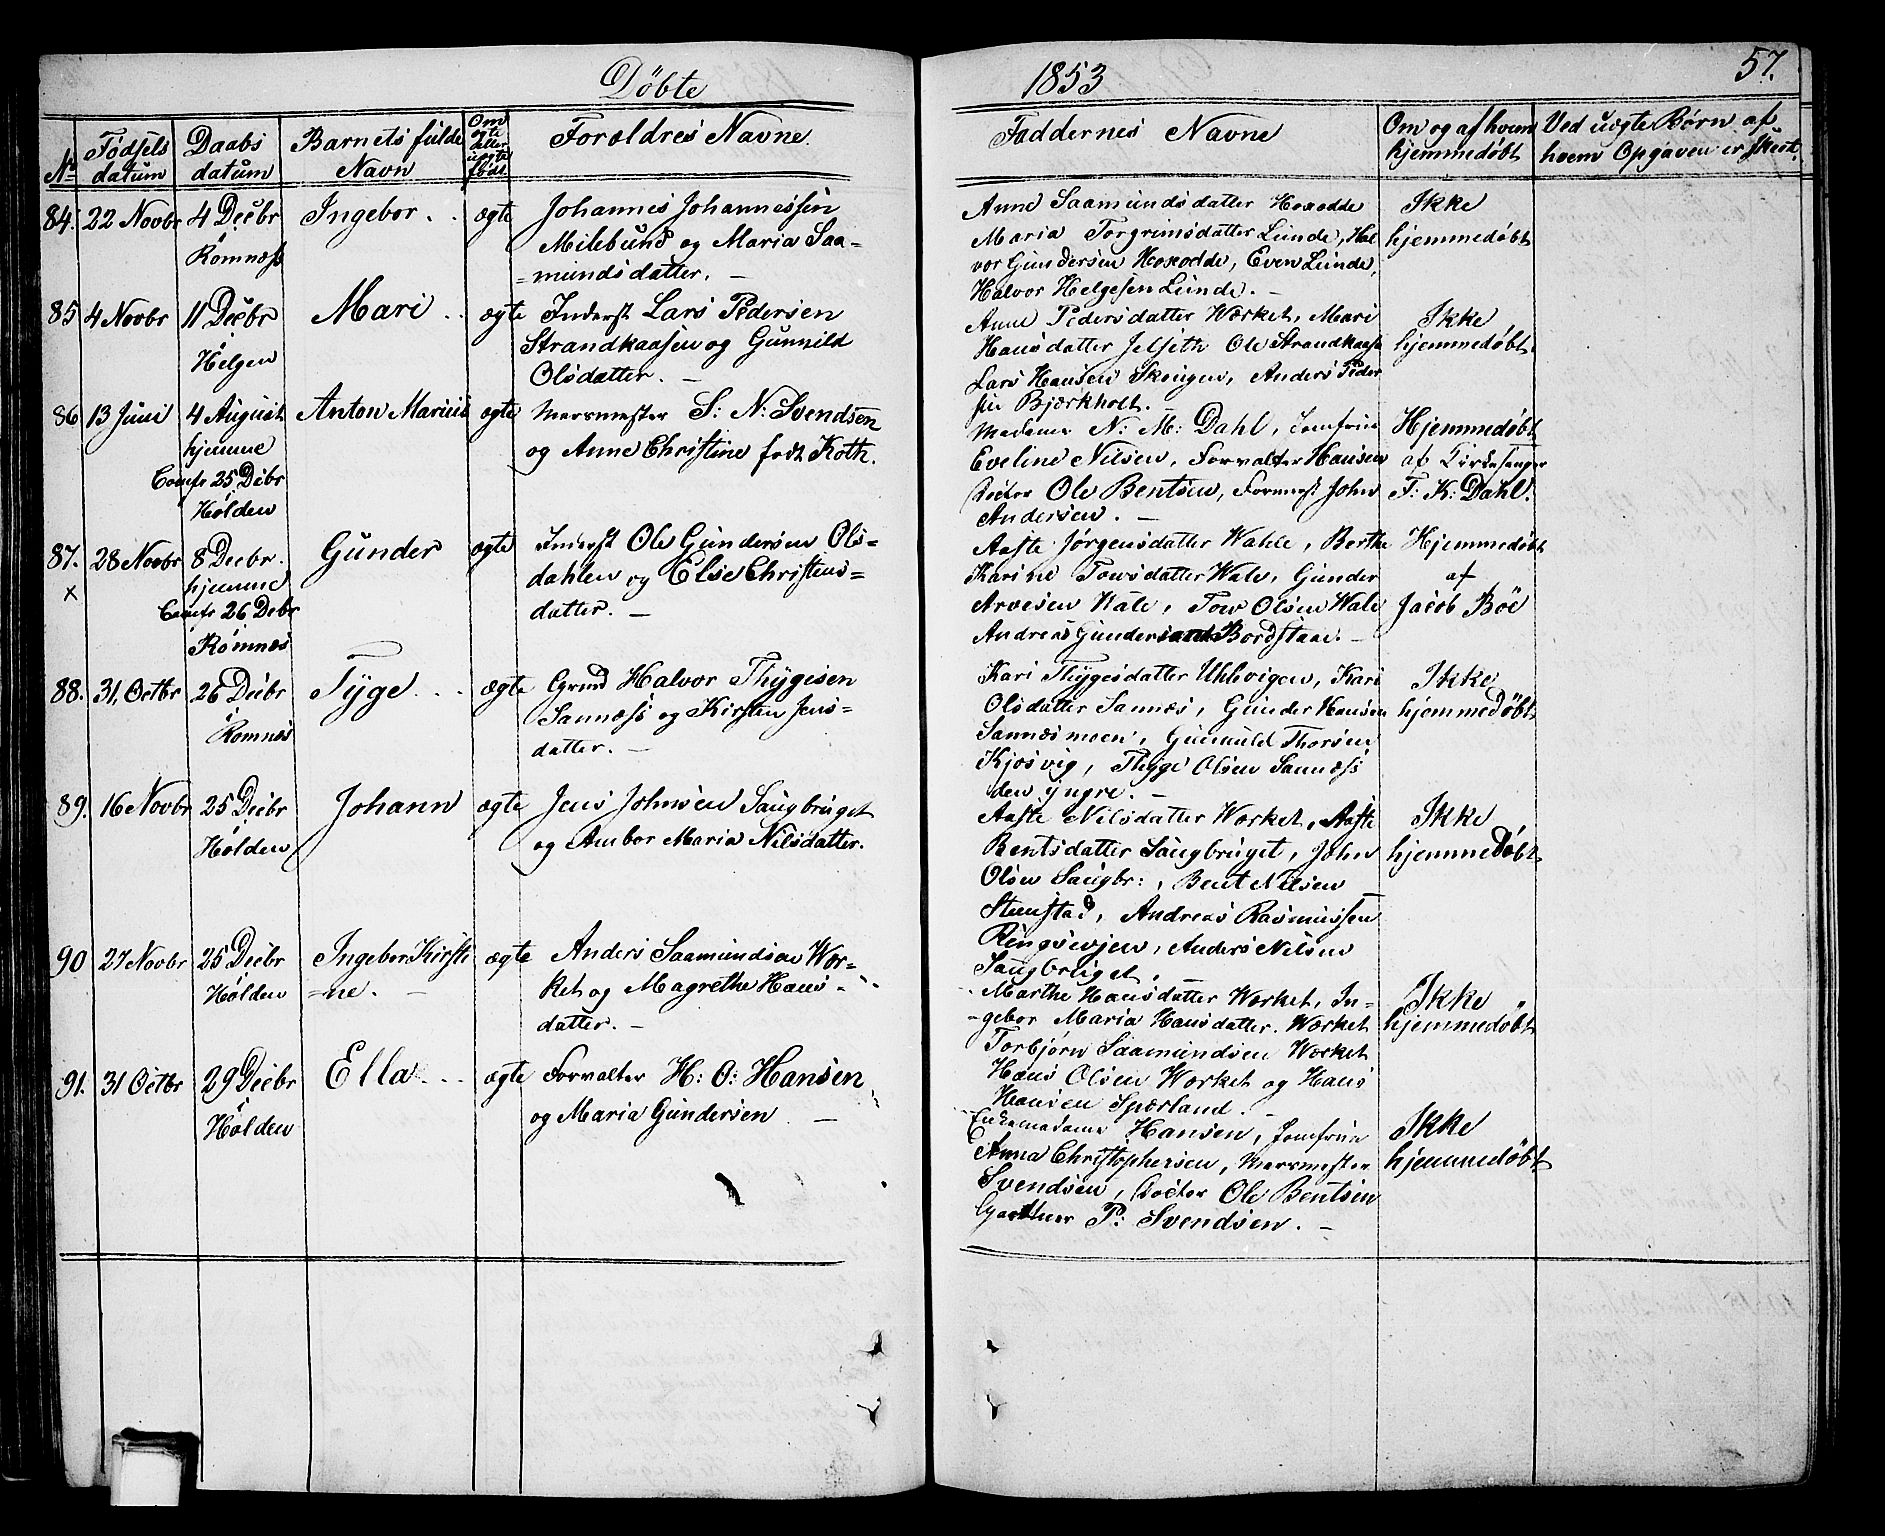 Döbte
1853
57.
No
Fødsels
datum
Daabs
datum
Barnets fulde
Navn
Om
ægte
eller
uægte
født
Forældres Navne.
Faddernes Navne
Om og af hvem
hjemmedøbt
Ved uægte Børn af
hvem Opgaven er skeet.
84. 22 Novbr 4 Decbr
i
Romnæs
Ingebor . .
ægte
Johannes Johannessen
Milebund og Maria Saa=
=mundsdatter. —
Anne Saamundsdatter Hoxodde
Maria Torgrimsdatter Lunde, Hal
vor Gundersen Hoxodde, Even Lunde,
Halvor Helgesen Lunde. —
Ikke
hjemmedøbt
85 4 Novbr 11 Decbr
i
Helgen
Mari . .
ægte
Inderst Lars Pedersen
Strandkaasen og Gunnild
Olsdatter. —
Anne Pedersdatter Værket, Mari
Hansdatter Jelseth Ole Strandkaase
Lars Hansen Skougen, Anders Peder
sen Bjærkholt.
Ikke
hjemmedøbt
86 13 Juni 4 August
hjemme
Comfr 25 Decbr
Holden
Anton Marius
ægte
Marsmester S: N: Svendsen
og Anne Christine født Koth.
Madame N: M: Dahl, Jomfrue
Eveline Nilsen, Forvalter Hansen
Docter Ole Bentsen, Formest John
Andersen. —
Hjemmedøbt
af Kirkesanger
T: K: Dahl.
87. 28 Novbr 8 Decbr.
x
hjemme
Comfr 26 Decbr
Romnæs
Gunder
ægte
Inderst Ole Gundersen Ols=
dahlen og Else Christens=
datter. —
Aaste Jørgensdatter Wahle, Berthe
Karine Towsdatter Wale, Gunder
Arvesen Wale, Tow Olsen Wale
Andreas Gundersen Bordstaae. —
Hjemmedøbt
af
Jacob Böe
88. 31, Octbr 26 Decbr
i
Romnæs
Tyge . . .
ægte
Grmd Halvor Thygesen
Sannæss og Kirsten Jens=
datter. —
Kari Thygesdatter Uhlevigen, Kari
Olsdatter Sannæs, Gunder Hansen
Sannæsmoen, Gunnuld Thorsen
Kjosvig, Thyge Olsen Sannæss
den yngre. —
Ikke
hjemmedøbt
89. 16 Novbr 25 Decbr
i
Holden
Johann
ægte
Jens Johnsen Saugbruget
og Ambor Maria Nilsdatter.
Aaste Nilsdatter Værket, Aaste
Bentsdatter Saugbruget, John
Olsen Saugbr:, Bent Nilsen
Stenstad, Andreas Rasmussen
Ringsevjen, Anders Nilsen
Saugbruget.
Ikke
hjemmedöbt
90 27 Novbr 25 Decbr
i
Holden
Ingebor Kirsti
=ne. —
ægte
Anders Saamundsen Vær=
ket og Magrethe Hans=
datter. —
Marthe Hansdatter Værket, In=
=gebor Maria Hansdatter. Værket
Torbjørn Saamundsen Værket
Hans Olsen Værket og Hans
Hansen Spærland. —
Ikke
hjemmedøbt
91. 31 Octbr 29 Decbr
i
Holden
Ella . . .
ægte
Forvalter H: O: Hansen
og Maria Gundersen —
Enkemadame Hansen, Jomfrue
Anna Christophersen, Marsmester
Svendsen, Docter Ole Bentsen
Gartner P: Svendsen. —
Ikke
hjemmedøbt